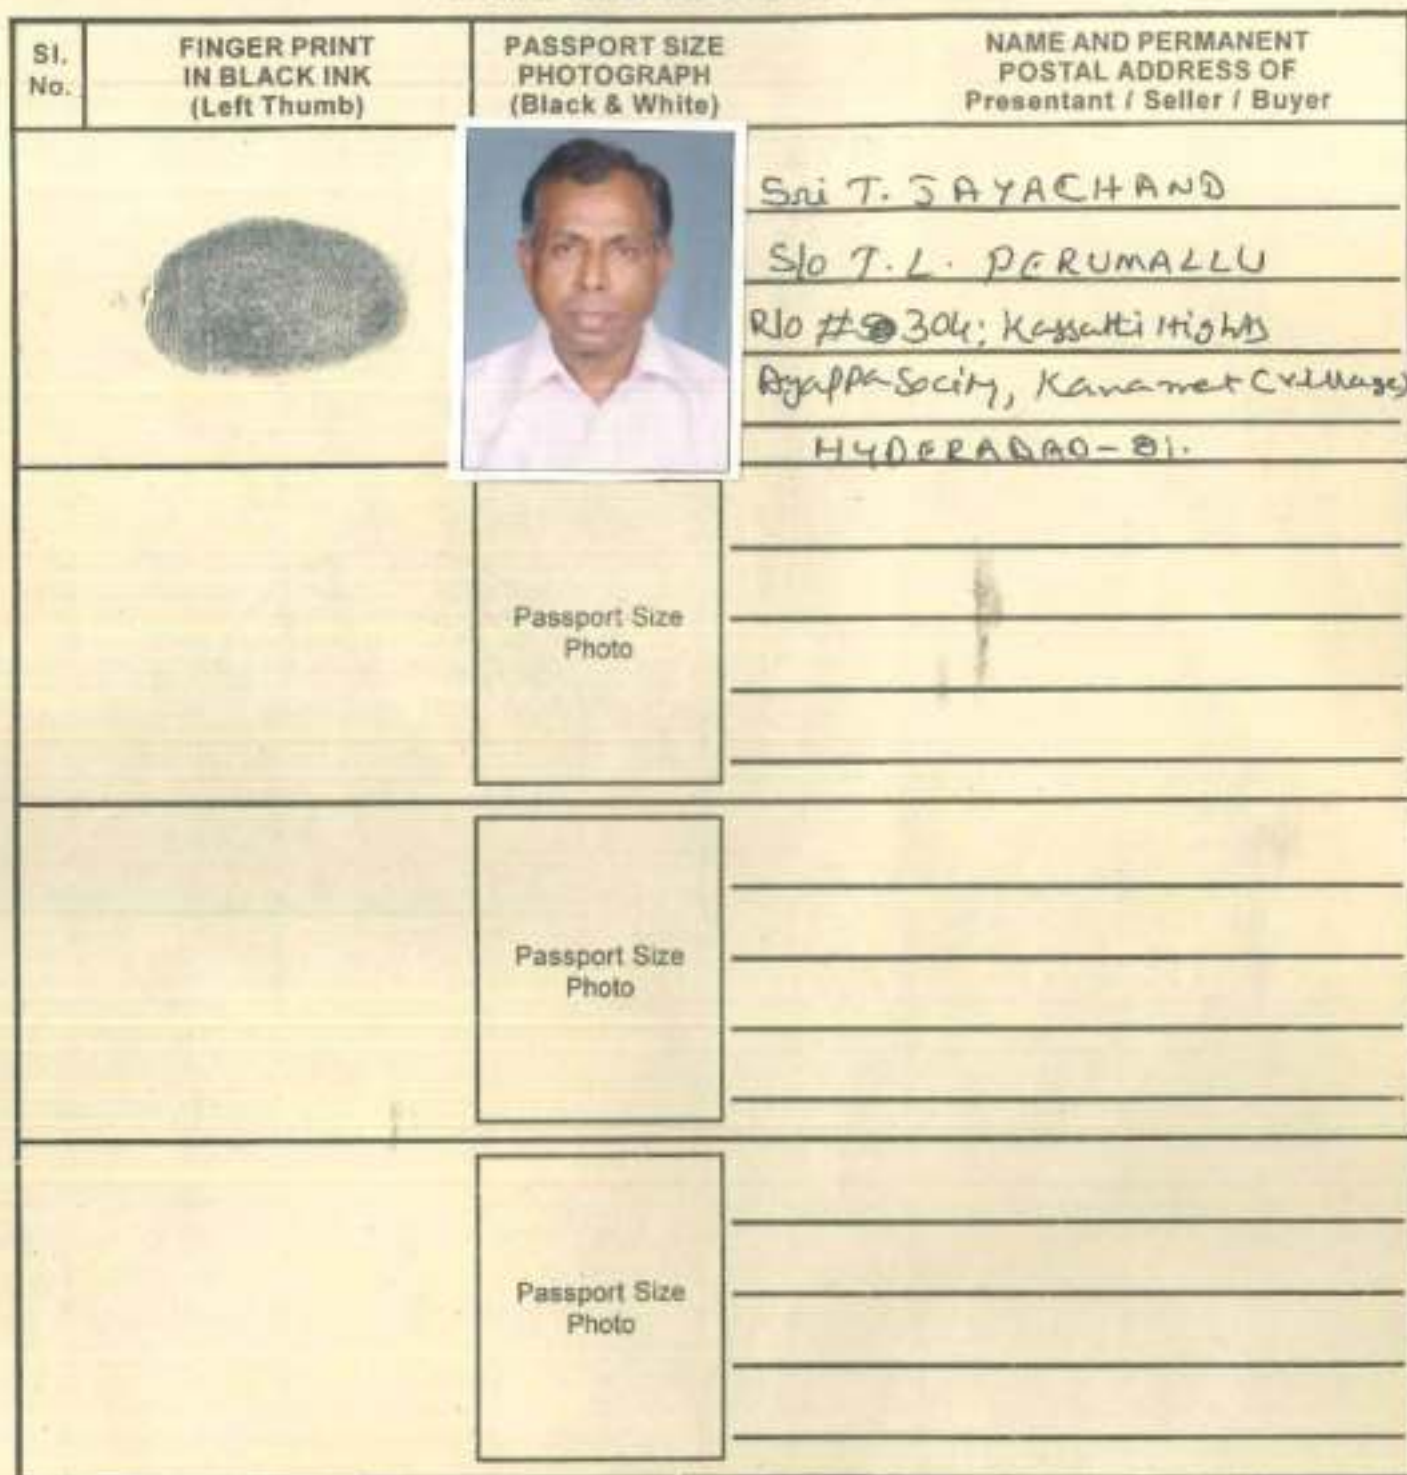 Sl. No.
FINGER PRINT IN BLACK INK (Left Thumb)
PASSPORT SIZE PHOTOGRAPH (Black & White)
NAME AND PERMANENT POSTAL ADDRESS OF Presentant / Seller / Buyer
Sri T. JAYACHAND
S/o T.L. PERUMALLU
R/o # 304; Hights
Ayappa Socity, Kanamet (village)
HYDERABAD-81.
Passport Size
Photo
Passport Size
Photo
Passport Size
Photo